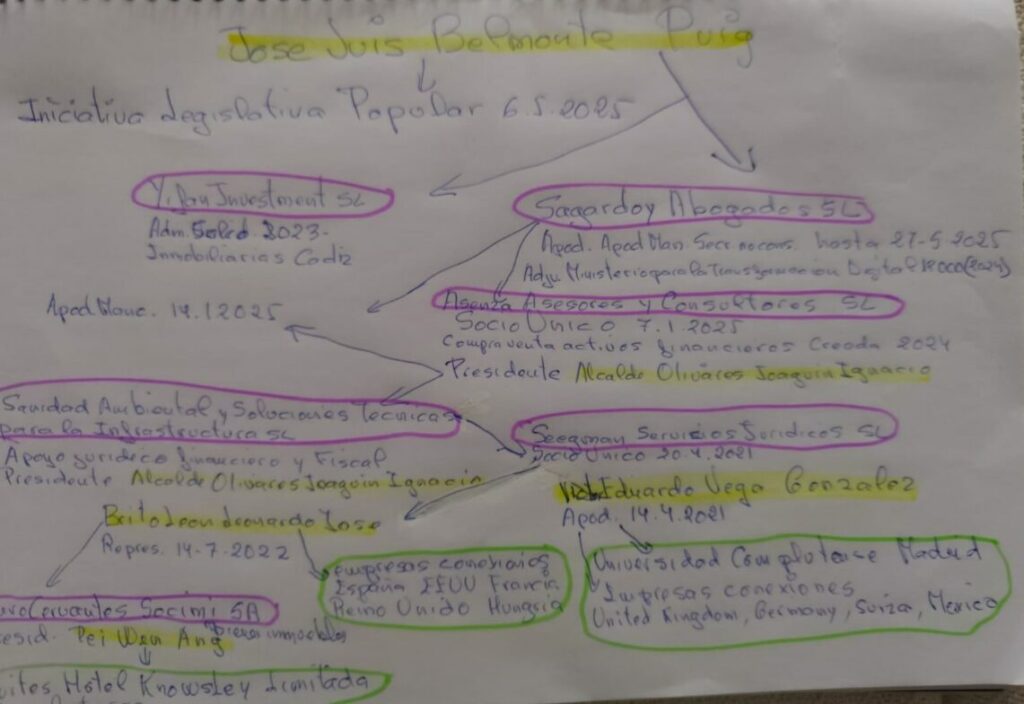 Jose Juis Belmonte Puig
Iniciativa Legislativa Popular 6.5.2025
Investment SL
Adm. Solid. 2023-
Inmobiliarias Cadiz
Sagardoy Abogados SL
Apod. Apod Man. hasta 27-5.2025
Adju. Ministerio para la Transformacion Digital (2024)
Apod Manc. 14.1.2025
Asenza Asesores y Consultores SL
Socio Unico 7.1.2025
Compraventa activos financieros Creada 2024
Presidente Alcalde Olivares Joaquin Ignacio
Sanidad Ambiental y Soluciones Tecnicas
para la Infrastructura SL
Apoyo juridico financiero y Fiscal
Presidente Alcalde Olivares Joaquin Ignacio
Seegman Servicios Juridicos SL
Socio Unico 20.4.2021
Eduardo Vega Gonzalez
Apod. 14.4.2021
Brito Leon Leonardo Jose
Repres. 14-7-2022
Empresas conexiones
España EEUU Francia
Reino Unido Hungria
Universidad Complutense Madrid
Impresas conexiones
United Kingdom, Germany, Suiza, Mexico
Cervantes Socimi SA
esid. Pei Wen Ang
bienes inmuebles
uites Hotel Knowsley Limitada